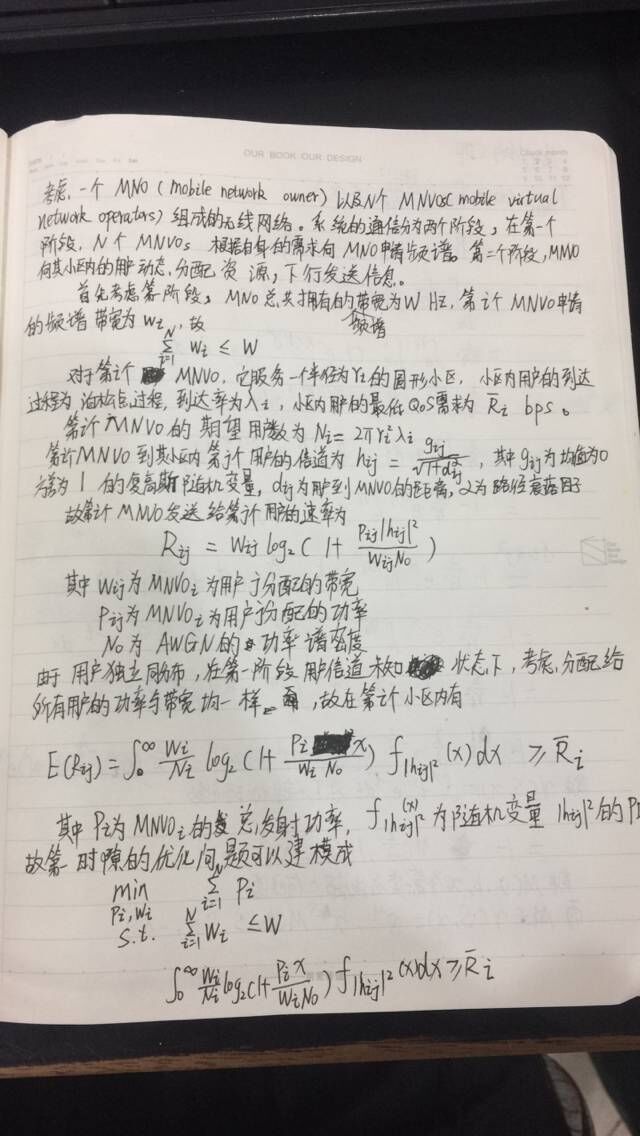 OUR BOOK OUR DESIGN
考虑,一个 MNO ( mobile network owner) 以及N个 MNVOs( mobile virtual
network operators) 组成的无线网络。系统的通信分为两个阶段,在第一个
阶段,N个 MNVOs 根据自身的需求向 MNO申请频谱。第二个阶段,MMO
向其小区内的用户动态,分配资源,下行发送信息。
首先考虑第阶段,MNO总共拥有的带宽为W HZ,第i个 MNVO申请
频谱
的频谱带宽为 wi,故
∑_{i=1}^{N} wi ≤ W
对于第i个 MNVO,它服务一个半径为ri的圆形小区,小区内用户的到达
过程为泊松点过程,到达率为λi,小区内用户的最低QoS需求为 R̄i bps。
第i个MNVO的期望用户数为 Ni=2πri²λi
第i个MNVO到其小区内第j个用户的信道为 hij = gij/√(1+dij^α),其中gij为均值为0
方差为1的复高斯随机变量,dij为用户到MNVO的距离,α为路径衰落因子
故第i个MNVO发送给第j个用户的速率为
Rij = wij log2( 1+ pij|hij|²/(wijN0) )
其中wij为MNVOi为用户j分配的带宽
Pij为MNVOi为用户j分配的功率
No为 AWGN的功率谱密度
由于用户独立同分布,在第一阶段用户信道未知状态下,考虑,分配给
所有用户的功率与带宽均一样,故在第i个小区内有
E(Rij)=∫_0^∞ wi/Ni log2(1+ Pi x/(wi N0)) f|hij|²(x)dx ≥R̄i
其中Pi为MNVOi的总发射功率,f|hij|²(x)为随机变量|hij|²的
故第一时隙的优化问题可以建模成
min ∑_{i=1}^{N} Pi
Pi,wi
s.t. ∑_{i=1}^{N} wi ≤W
∫_0^∞ wi/Ni log2(1+ Pi x/(wiN0)) f|hij|²(x)dx ≥R̄i